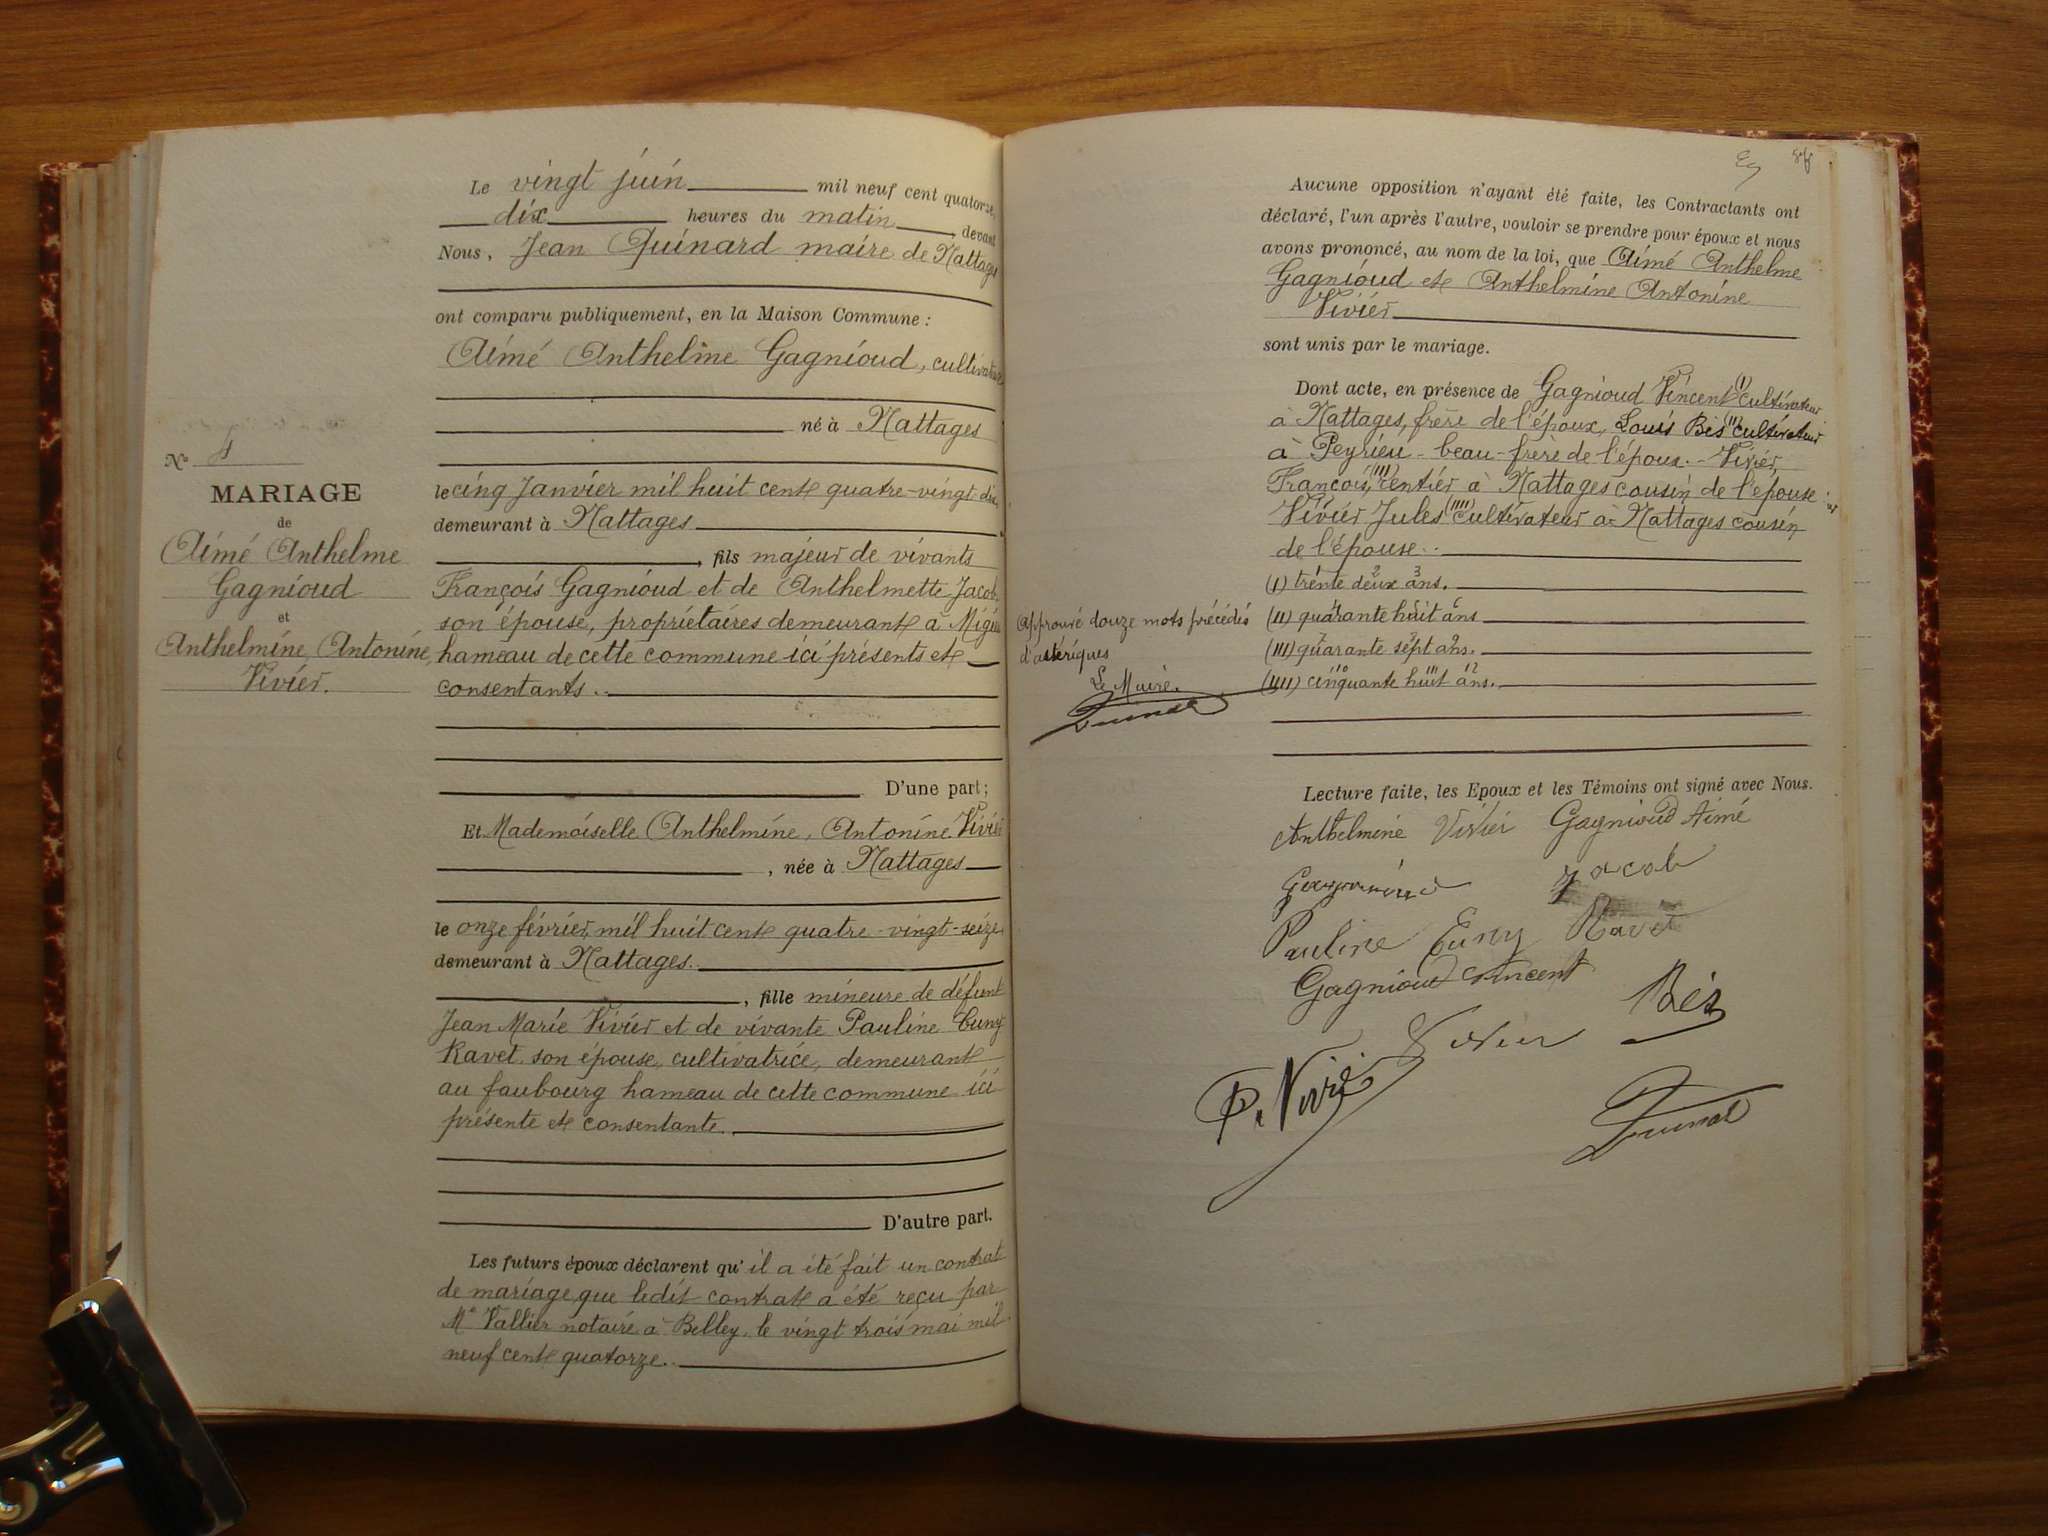 Le vingt juin mil neuf cent quatorze,
dix heures du matin, devant
Nous, Jean Quinard maire de Nattages
ont comparu publiquement, en la Maison Commune :
Aimé Anthelme Gagnioud, cultivateur
né à Nattages
le cinq Janvier mil huit cent quatre-vingt-dix,
demeurant à Nattages
, fils majeur de vivants
François Gagnioud et de Anthelmette Jacob
son épouse, propriétaires demeurant à
hameau de cette commune ici présents et
consentants.
D'une part;
Et Mademoiselle Anthelmine, Antonine Vivier
, née à Nattages
le onze février, mil huit cent quatre-vingt-seize
demeurant à Nattages.
, fille mineure de défunt
Jean Marie Vivier et de vivante Pauline Euny
Ravet son épouse, cultivatrice, demeurant
au faubourg hameau de cette commune ici
présente et consentante.
D'autre part.
Les futurs époux déclarent qu'il a été fait un contrat
de mariage que ledit contrat a été reçu par
Me Vallier notaire à Belley, le vingt trois mai mil
neuf cent quatorze.
No 4
MARIAGE
de
Aimé Anthelme
Gagnioud
et
Anthelmine, Antonine,
Vivier.
Aucune opposition n'ayant été faite, les Contractants ont
déclaré, l'un après l'autre, vouloir se prendre pour époux et nous
avons prononcé, au nom de la loi, que Aimé Anthelme
Gagnioud et Anthelmine Antonine
Vivier
sont unis par le mariage.
Dont acte, en présence de Gagnioud Vincent (I) cultivateur
à Nattages, frère de l'époux, Louis Bès (II) cultivateur
à Peyrieu - beau-frère de l'époux. - Vivier,
François, (III) rentier à Nattages cousin de l'épouse
Vivier Jules (IIII) cultivateur à Nattages cousin
de l'épouse.
(I) trente deux ans.
(II) quarante huit ans
(III) quarante sept ans.
(IIII) cinquante huit ans.
Approuvé douze mots précédés
d'astériques
Le Maire.
Quinard
Lecture faite, les Epoux et les Témoins ont signé avec Nous.
Anthelmine Vivier Gagnioud Aimé
Gagnioud Jacob
Pauline Euny Ravet
Gagnioud Vincent
Bès
Vivier
Quinard